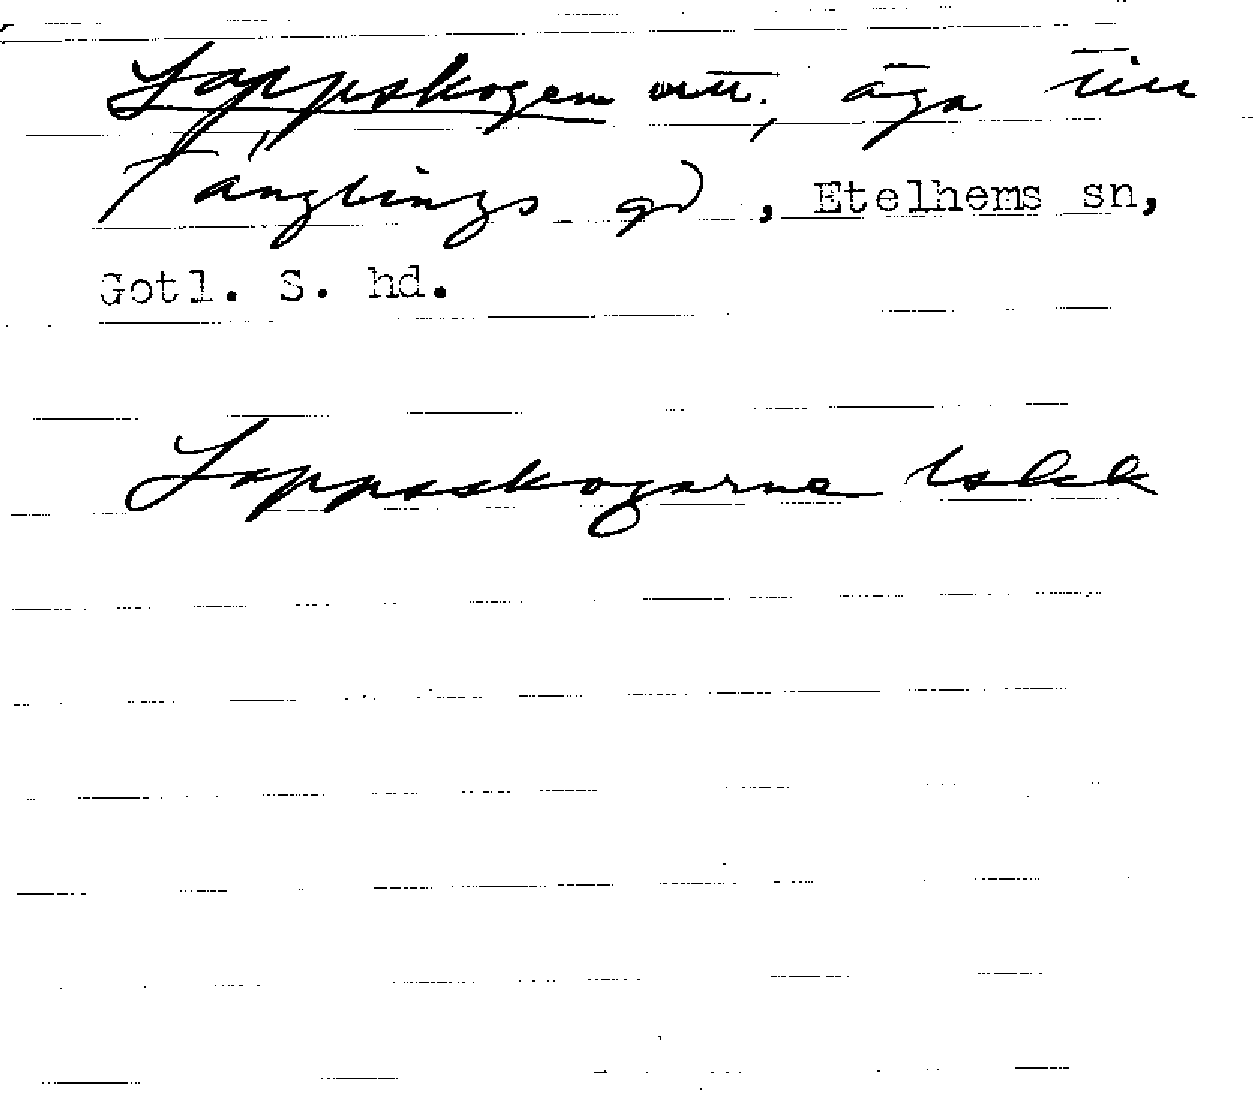 Lappskogen outt., äga till
Tänglings gd, Etelhems sn,
Gotl. S. hd.
Lappsskogarne